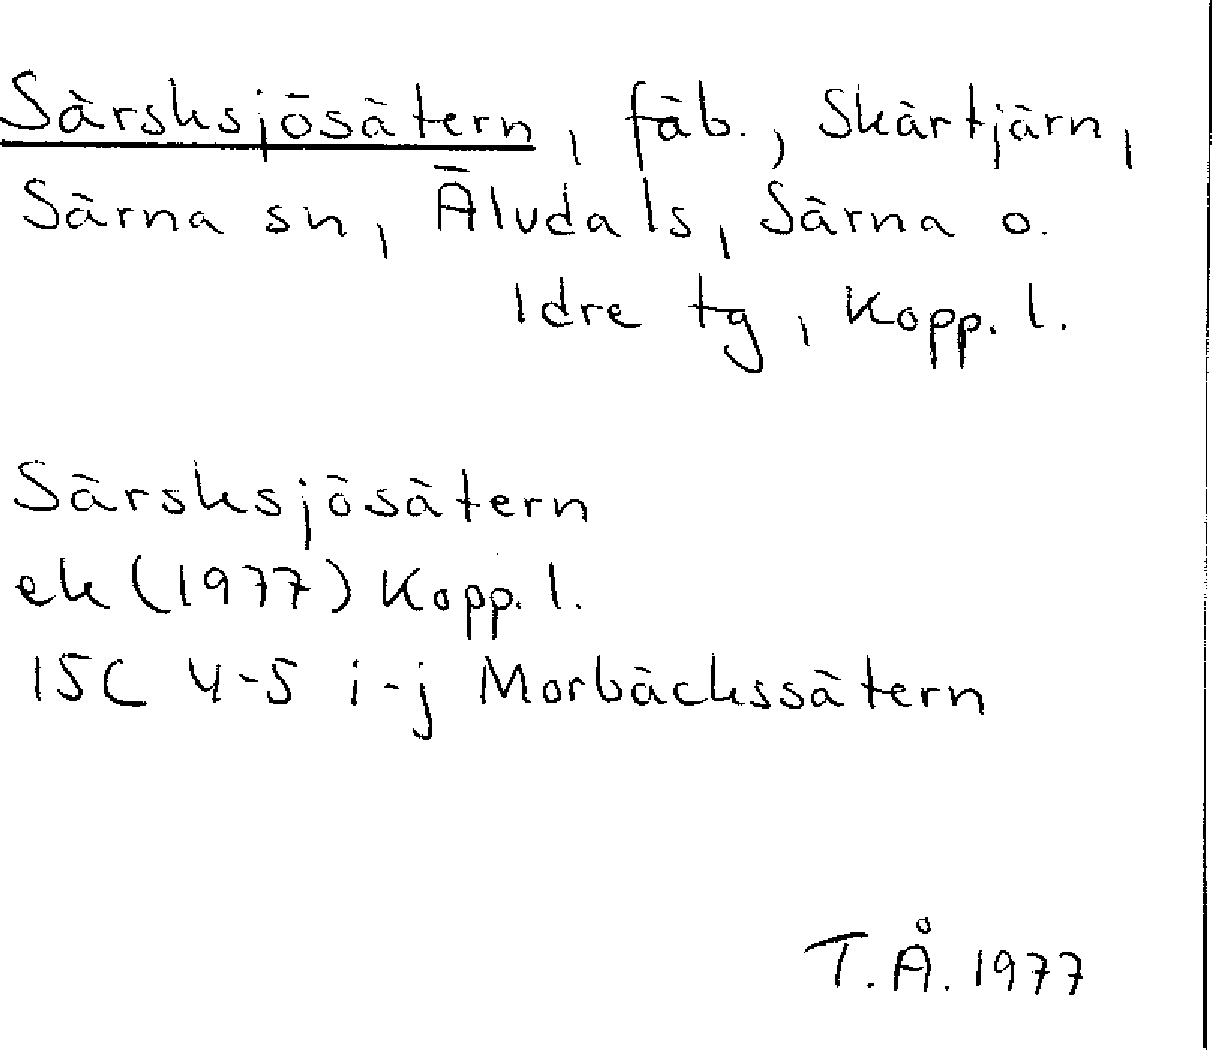 Särsksjösätern, fäb., Skärtjärn,
Särna sn, Älvdals, Särna o.
Idre tg, Kopp. l.
Särsksjösätern
ek (1977) Kopp. l.
15C 4-5 i-j Morbäckssätern
T.Å. 1977